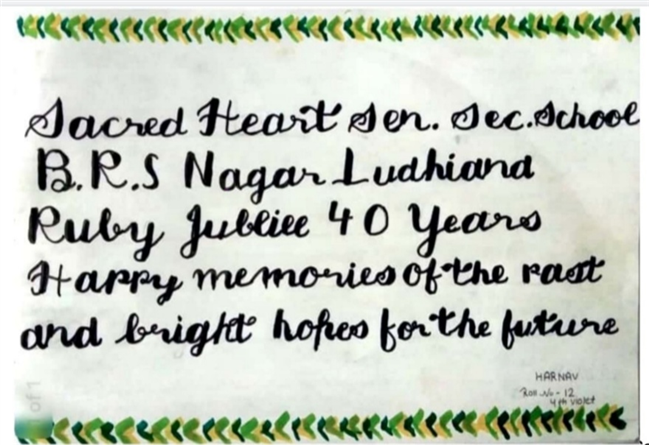 Sacred Heart Sen. Sec. School
B.R.S Nagar Ludhiana
Ruby Jubliee 40 Years
Happy memories of the past
and bright hopes for the future
HARNAV
Roll No - 12
4th Violet
of 1